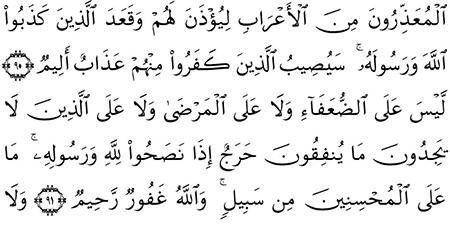 الْمُعَذِّرُونَ مِنَ الْأَعْرَابِ لِيُؤْذَنَ لَهُمْ وَقَعَدَ الَّذِينَ كَذَبُوا
اللَّهَ وَرَسُولَهُۥ ۚ سَيُصِيبُ الَّذِينَ كَفَرُوا مِنْهُمْ عَذَابٌ أَلِيمٌ ٩٠
لَّيْسَ عَلَى الضُّعَفَاءِ وَلَا عَلَى الْمَرْضَىٰ وَلَا عَلَى الَّذِينَ لَا
يَجِدُونَ مَا يُنفِقُونَ حَرَجٌ إِذَا نَصَحُوا لِلَّهِ وَرَسُولِهِۦ ۚ مَا
عَلَى الْمُحْسِنِينَ مِن سَبِيلٍ ۚ وَاللَّهُ غَفُورٌ رَّحِيمٌ ٩١ وَلَا